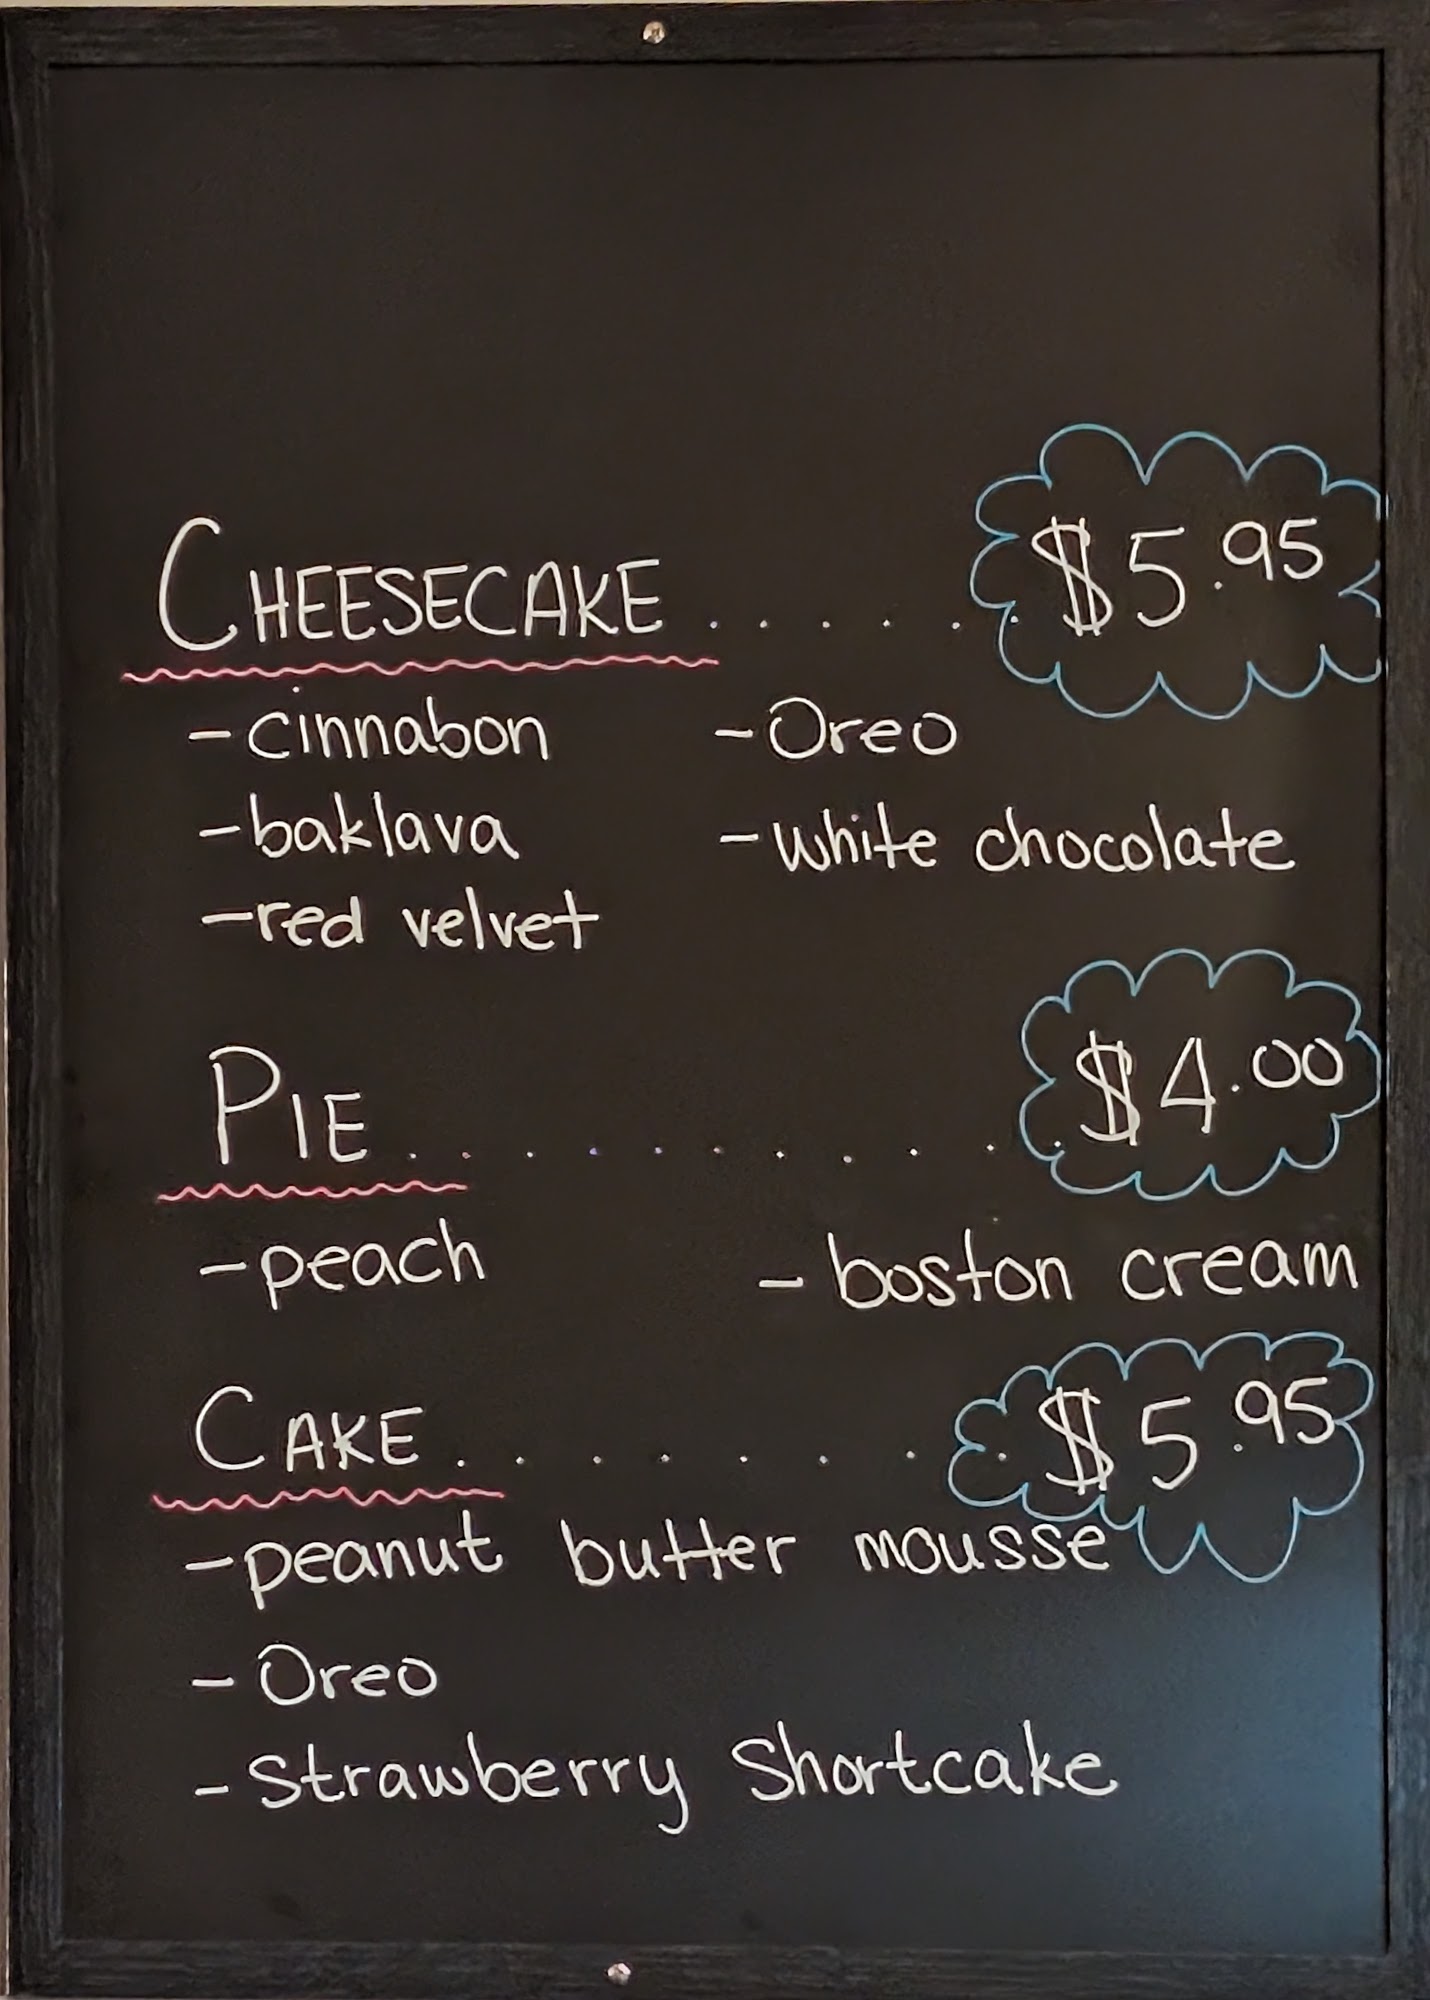 CHEESECAKE . . . . . . $5.95
- cinnabon - Oreo
- baklava - white chocolate
- red velvet
PIE . . . . . . . . . . . $4.00
- peach - boston cream
CAKE . . . . . . . . $5.95
- peanut butter mousse
- Oreo
- Strawberry Shortcake